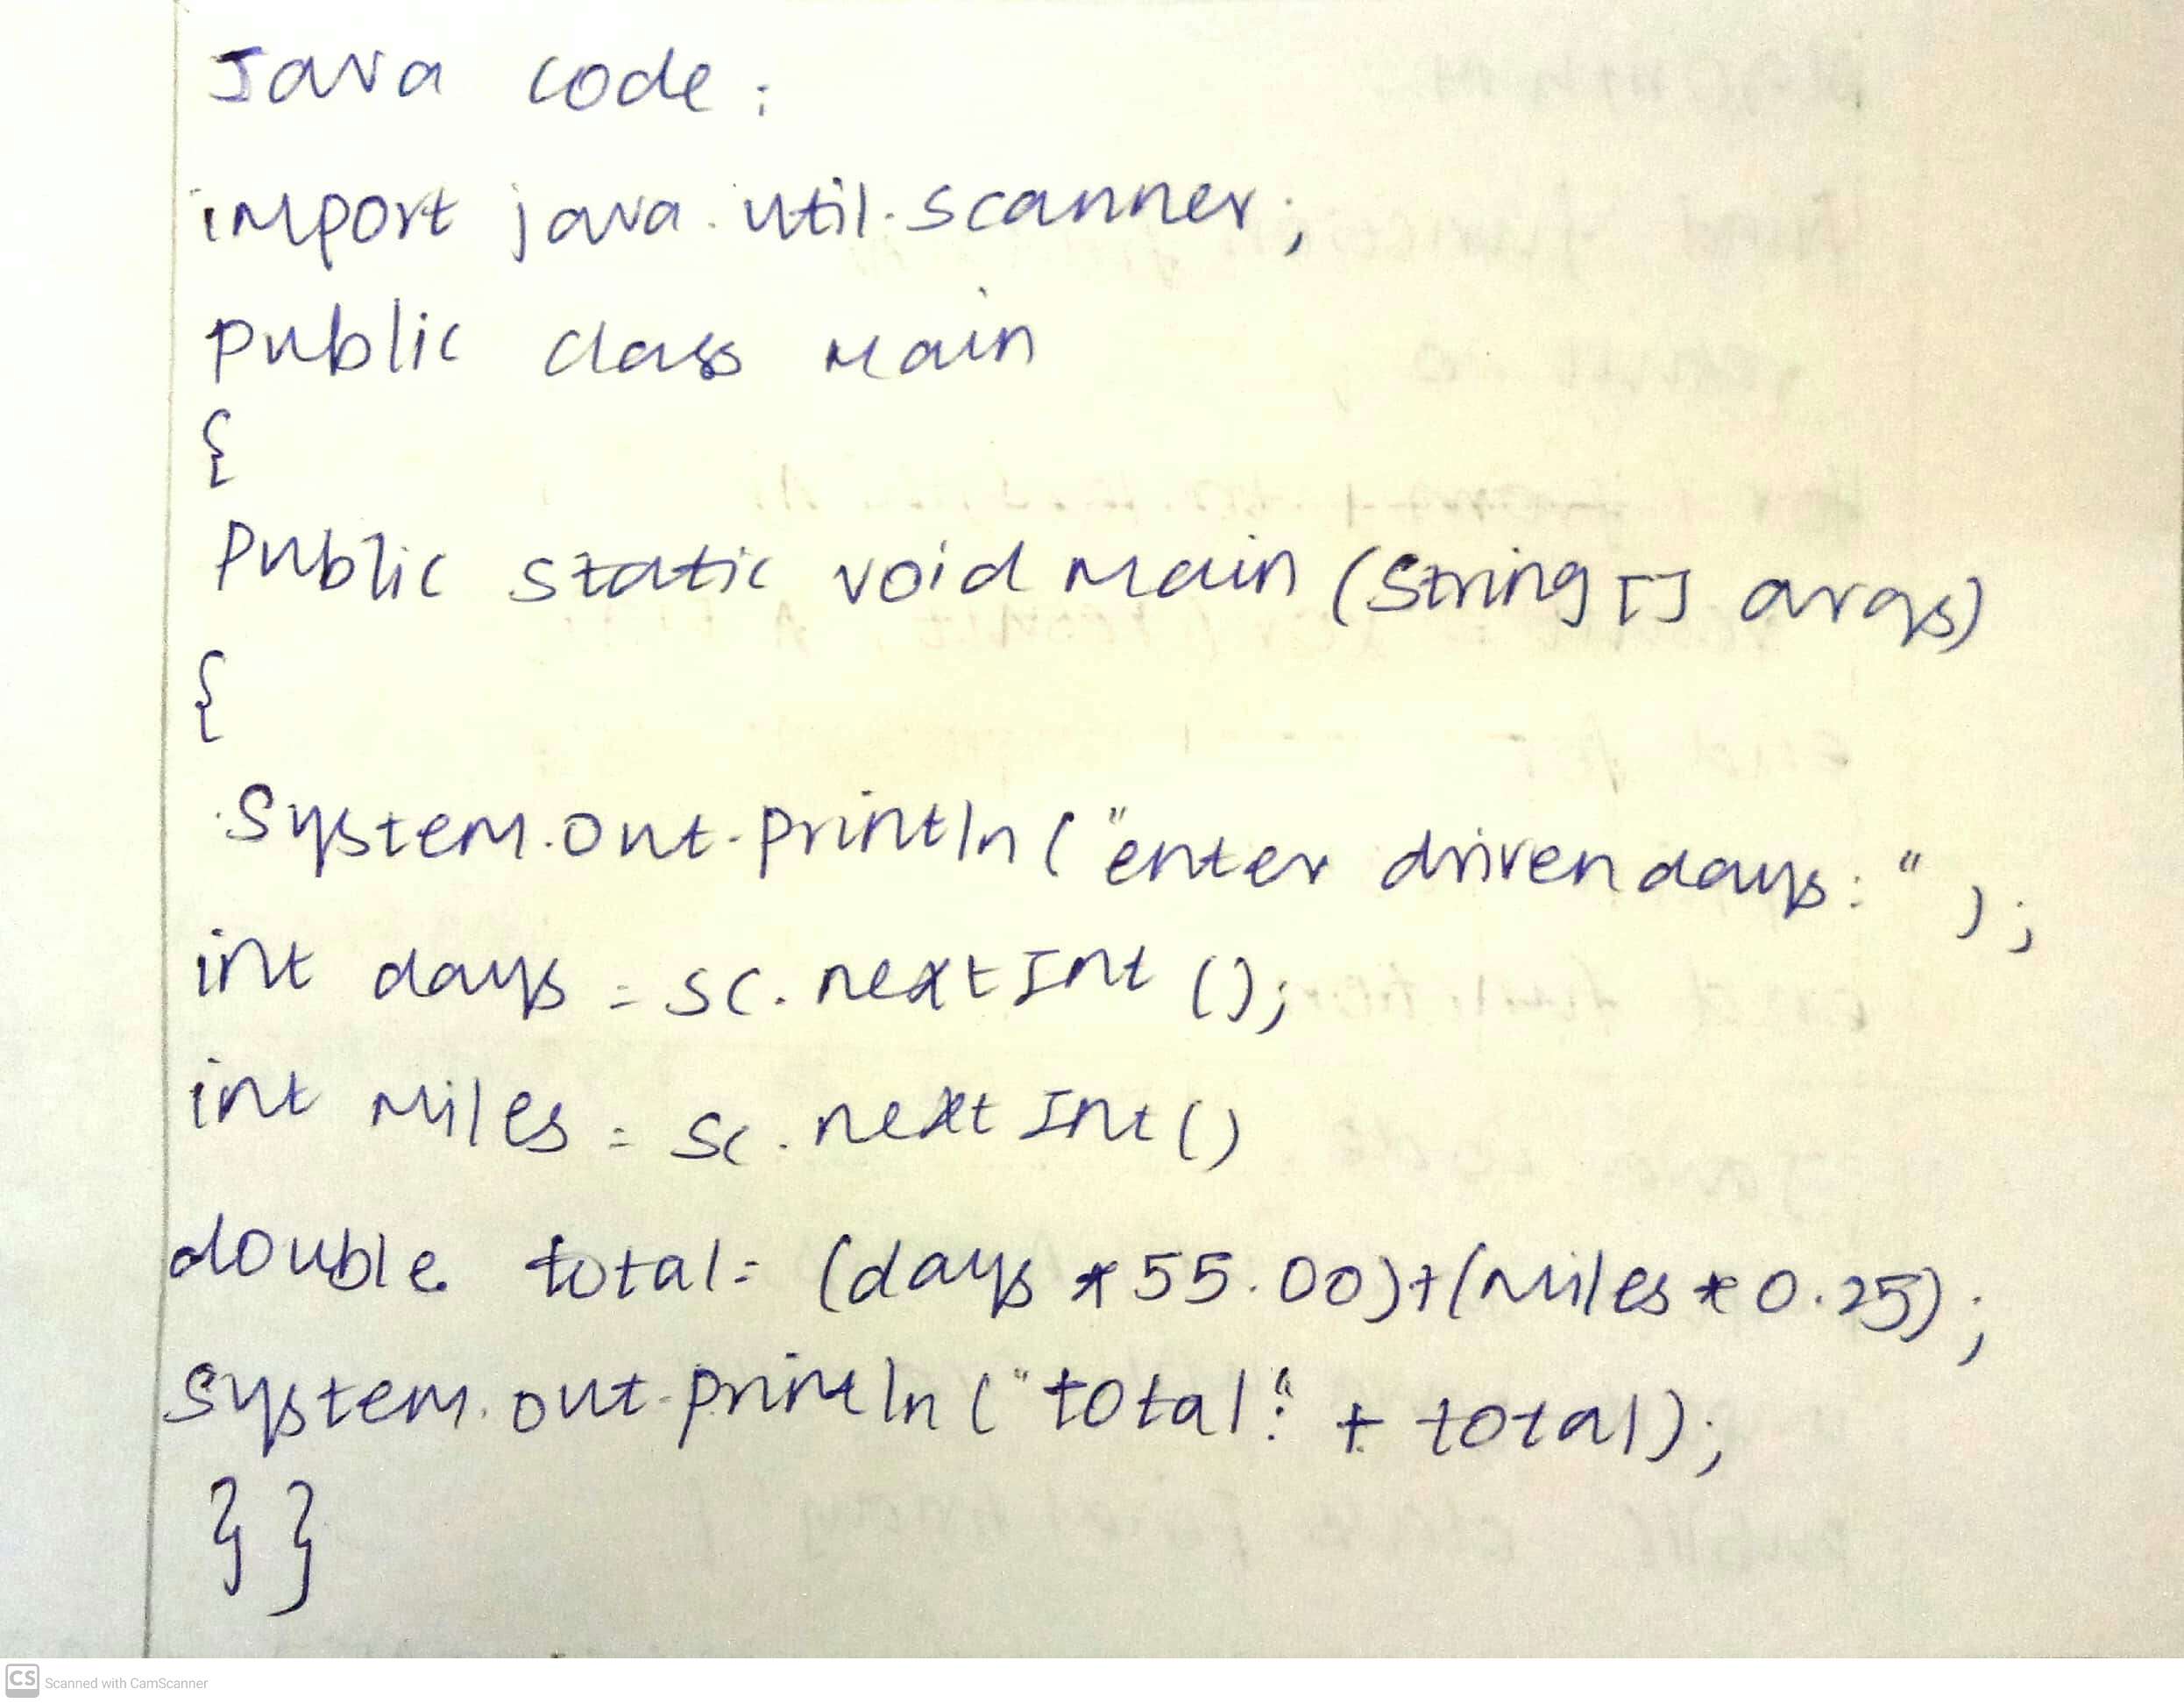 Java code:
import java.util.scanner;
public class main
{
public static void main (String [] args)
{
System.out.println ("enter driven days:");
int days = sc.nextInt ();
int miles = sc.nextInt ()
double total = (days * 55.00)+(miles * 0.25);
System.out.println ("total:" + total);
}}
CS Scanned with CamScanner